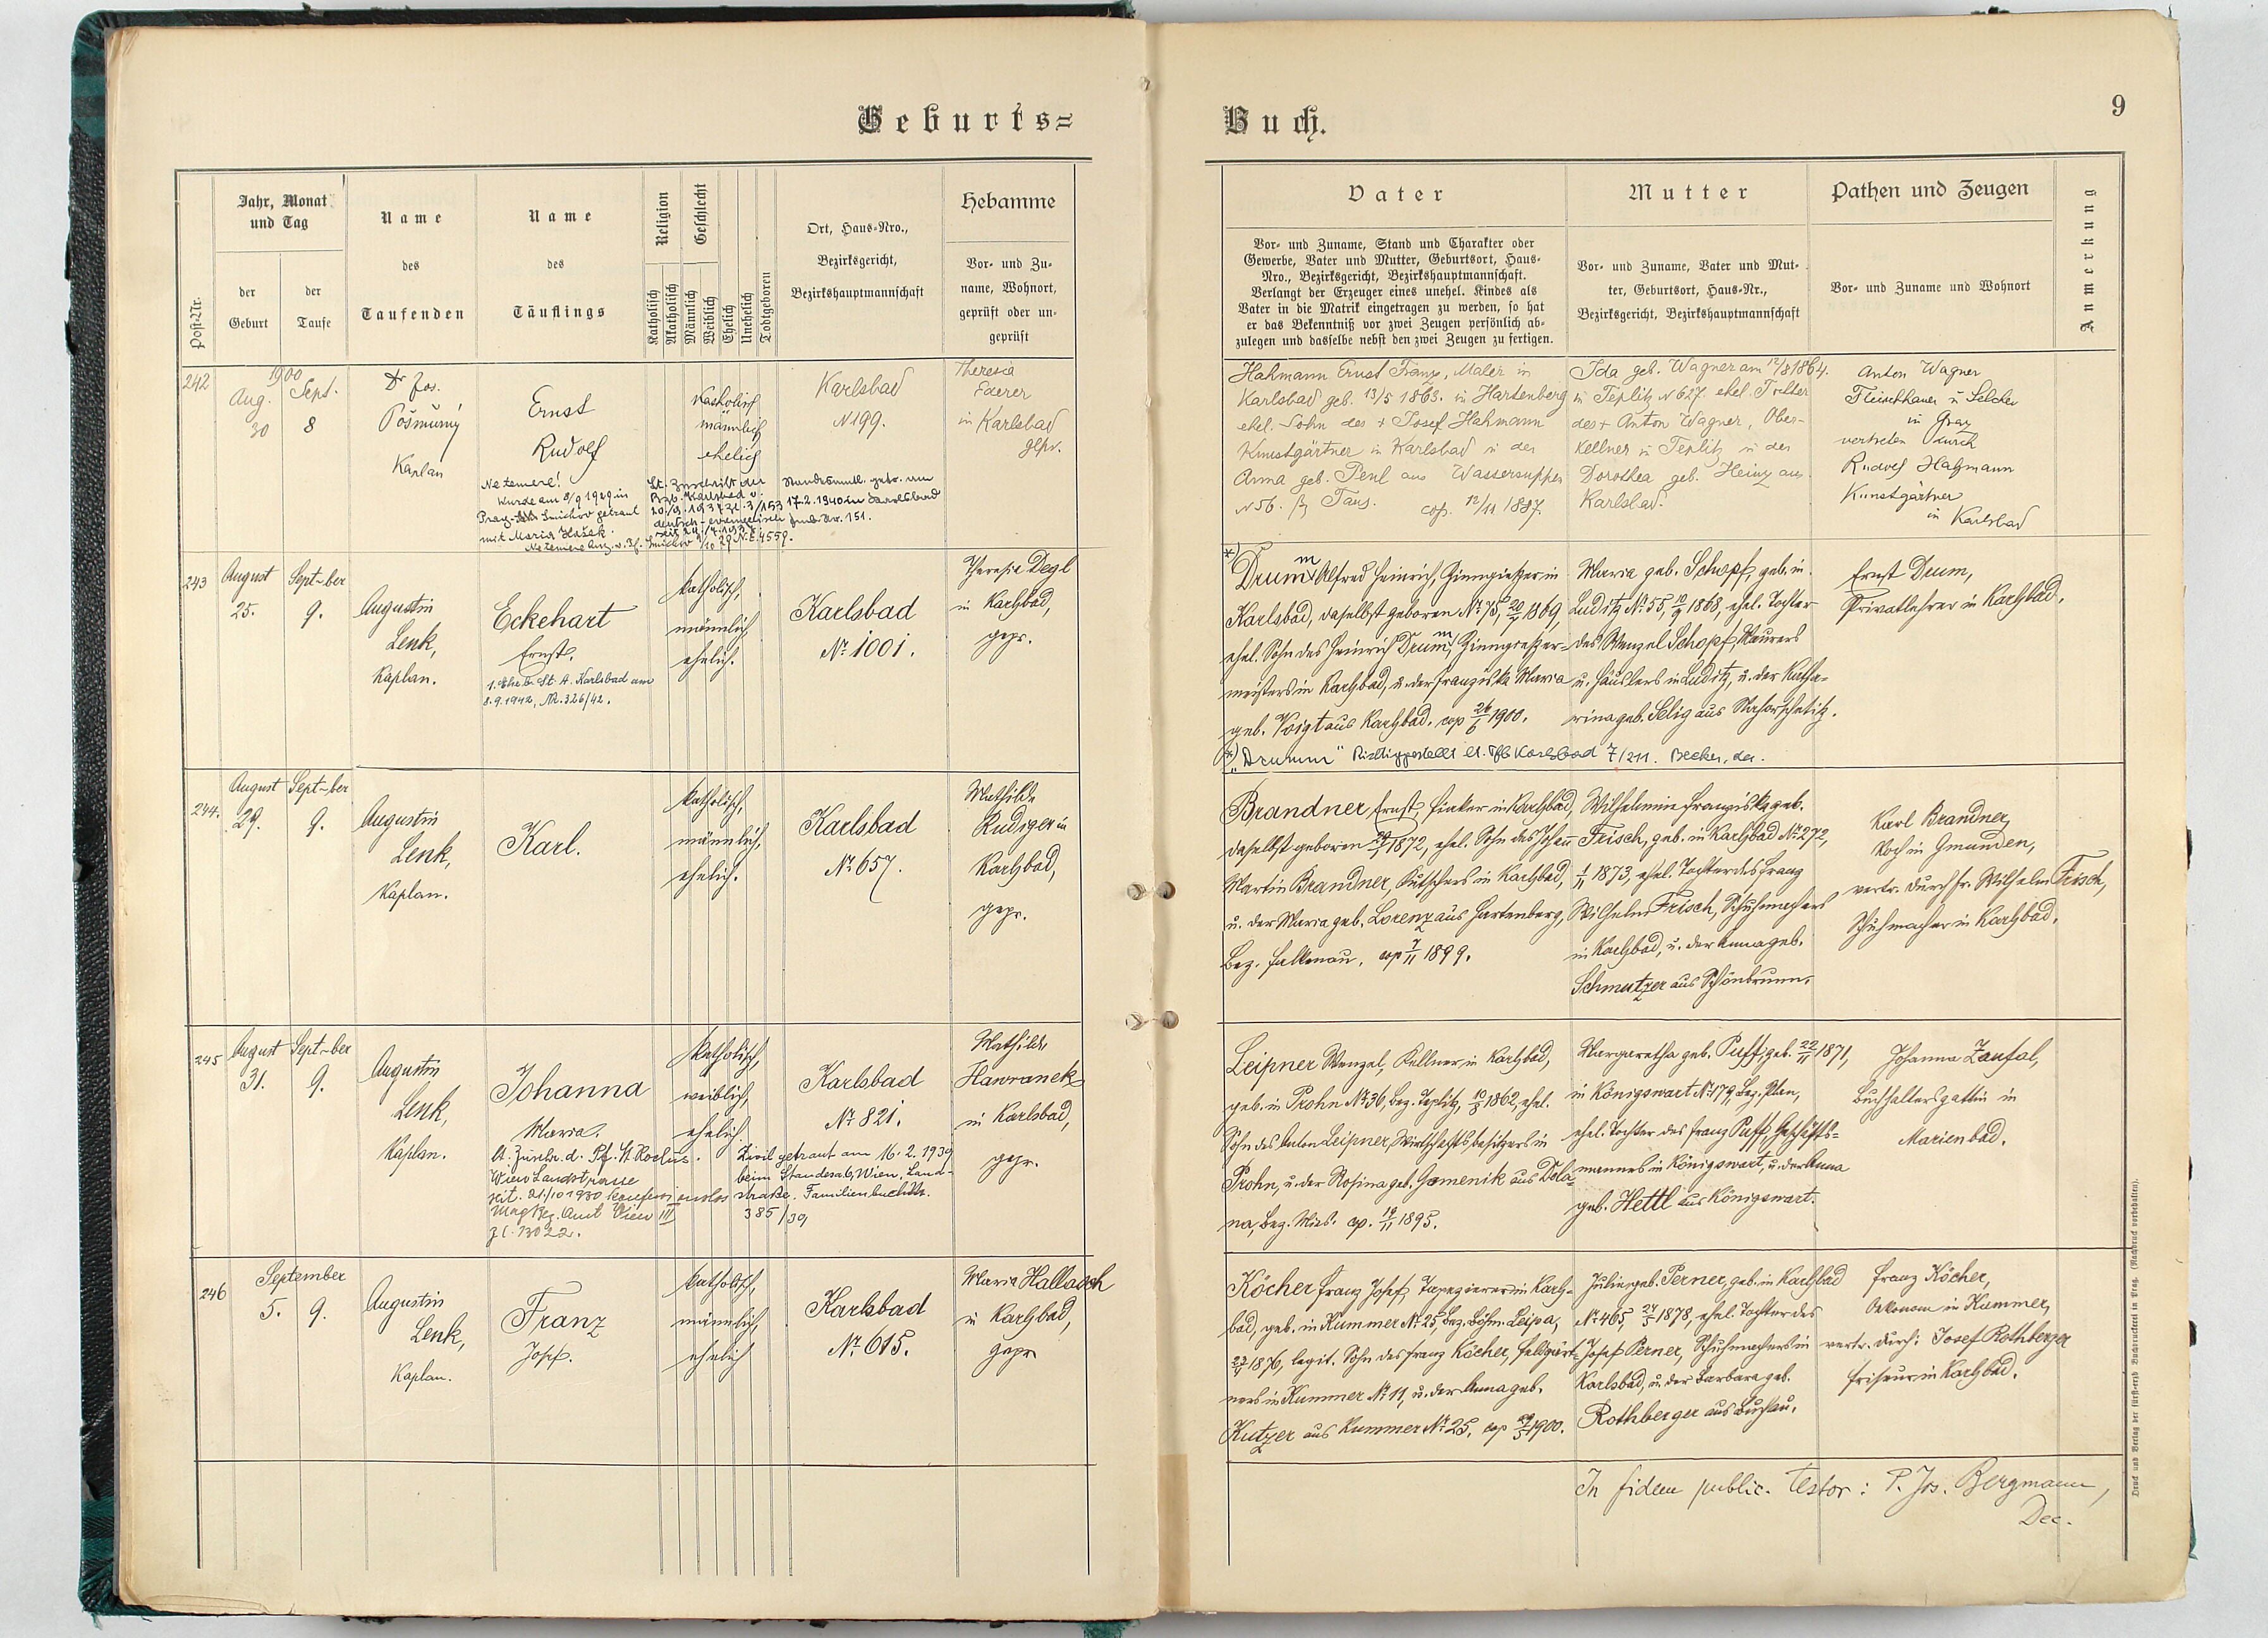 Geburts=
Jahr, Monat
und Tag
der
Geburt
der
Taufe
Post-Nr.
Name
des
Taufenden
Name
des
Täuflings
Religion
Katholisch
Akatholisch
Geschlecht
Männlich
Weiblich
Ehelich
Unehelich
Todtgeboren
Ort, Haus-Nro.,
Bezirksgericht,
Bezirkshauptmannschaft
Hebamme
Vor- und Zu-
name, Wohnort,
geprüft oder un-
geprüft
242
1900
Aug. Sept.
30 8
Dr Jos.
Pošmůrný
Kaplan
Ernst
Rudolf
Katholisch
männlich
ehelich
Karlsbad
N 199.
Theresia
in Karlsbad
gepr.
Ne temere!
Wurde am 8/9 1929 in
Prag- Smichov getraut
mit Maria Hašek.
Lt. Zuschrift der
Bzb. Karlsbad v.
deutsch-evangelisch
Standesamtl. getr. am
17.2.1940 in Karlsbad
Fmb. Nr. 151.
243
August Sept-ber
25. 9.
Augustin
Lenk,
Kaplan.
Eckehart
Ernst.
1. Ehe b. St. A. Karlsbad am
8.9.1942, Nr. 326/42.
katholisch,
männlich,
ehelich.
Karlsbad
Nr. 1001.
Theresia Degl
in Karlsbad,
gepr.
244.
August Sept-ber
29. 9.
Augustin
Lenk,
Kaplan.
Karl.
katholisch,
männlich,
ehelich.
Karlsbad
Nr. 657.
Mathilde
Rudiger in
Karlsbad,
gepr.
245
August Sept-ber
31. 9.
Augustin
Lenk,
Kaplan.
Johanna
Maria.
katholisch,
weiblich,
ehelich.
Karlsbad
Nr. 821.
Mathilde
Hawranek
in Karlsbad,
gepr.
lt. Zuschr. d. Pf. St. Rochus.
Wien Landstrasse
seit. 21/10 1930 konfessionslos
Mag. Bez. Amt Wien III
Zl. 13022.
Zivil getraut am 16.2.1939
beim Standesamt Wien, Land-
straße. Familienbuch Nr.
385/39
246
September
5. 9.
Augustin
Lenk,
Kaplan.
Franz
Josef.
katholisch,
männlich,
ehelich
Karlsbad
Nr. 615.
Maria Halla
in Karlsbad,
gepr.
Buch.
9
Vater
Vor- und Zuname, Stand und Charakter oder
Gewerbe, Vater und Mutter, Geburtsort, Haus-
Nro., Bezirksgericht, Bezirkshauptmannschaft.
Verlangt der Erzeuger eines unehel. Kindes als
Vater in die Matrik eingetragen zu werden, so hat
er das Bekenntniß vor zwei Zeugen persönlich ab-
zulegen und dasselbe nebst den zwei Zeugen zu fertigen.
Mutter
Vor- und Zuname, Vater und Mut-
ter, Geburtsort, Haus-Nr.,
Bezirksgericht, Bezirkshauptmannschaft
Pathen und Zeugen
Vor- und Zuname und Wohnort
Anmerkung
Hahmann Ernst Franz, Maler in
Karlsbad geb. 13/5 1863. in Hartenberg
ehel. Sohn des + Josef Hahmann
Kunstgärtner in Karlsbad u der
Anna geb. Penl aus Wassersuppen
N 56. Bz Taus. cop. 12/11 1887.
Ida geb. Wagner am 12/8 1864.
in Teplitz N 627. ehel. Tochter
des + Anton Wagner, Ober-
kellner in Teplitz u der
Dorothea geb. Heinz aus
Karlsbad.
Anton Wagner
Fleischhauer u Selcher
in Graz
vertreten durch
Rudolf Hahmann
Kunstgärtner
in Karlsbad
*) Drumm Alfred Heinrich, Zinngießer in
Karlsbad, daselbst geboren Nr. 75, 1869,
ehel. Sohn des Heinrich Drumm, Zinngießer-
meisters in Karlsbad, u. der Franziska Maria
geb. Voigt aus Karlsbad. cop 26/6 1900.
Maria geb. Schopf, geb. in
Luditz Nr. 55, 10/9 1868, ehel. Tochter
des Wenzel Schopf, Maurers
u. Häuslers in Luditz, u. der Katha-
rina geb. Selig aus
Ernst Drum,
Privatlehrer in Karlsbad.
*) „Drumm" Richtiggestellt lt. Tfb Karlsbad 7/211. Becker, der.
Brandner Ernst, Fiaker in Karlsbad,
daselbst geboren 1872, ehel. Sohn des Johann
Martin Brandner, Kutschers in Karlsbad,
u. der Maria geb. Lorenz aus Hartenberg,
Bez. Falkenau. cop 7/11 1899.
Wilhelmine Franziska geb.
Frisch, geb. in Karlsbad Nr. 272,
1/11 1873, ehel. Tochter des Franz
Wilhelm Frisch, Schuhmachers
in Karlsbad, u. der Anna geb.
Schmutzer aus Schönbrunn.
Karl Brandner,
Koch in Gmunden,
vertr. durch Fr. Wilhelm Frisch,
Schuhmacher in Karlsbad.
Leipner Wenzel, Kellner in Karlsbad,
geb. in Prohn Nr. 36, Bez. Teplitz, 1862, ehel.
Sohn des Anton Leipner, Wirtschaftsbesitzers in
Prohn, u. der Rosina geb. Gomenik aus Dola-
na, Bez. Mies. cop. 19/11 1895.
Margaretha geb. Puff, geb. 22/11 1871,
in Königswart Nr. 179, Bez. Plan,
ehel. Tochter des Franz Puff, Geschäfts-
mannes in Königswart, u. der Anna
geb. Hettl aus Königswart.
Johanna Zaufal,
Buchhaltersgattin in
Marienbad.
Köcher Franz Josef, Tapezierer in Karls-
bad, geb. in Kummer Nr. 25, Bez. Böhm. Leipa,
1876, legit. Sohn des Franz Köcher, Feldgärt-
ners in Kummer Nr. 11, u. der Anna geb.
Kutzer aus Kummer Nr. 25. cop 1900.
Julie geb. Perner, geb. in Karlsbad
Nr. 465, 1878, ehel. Tochter des
Josef Perner, Schuhmachers in
Karlsbad, u. der Barbara geb.
Rothberger aus Buchau.
Franz Köcher,
Oekonom in Kummer,
vertr. durch: Josef Rothberger
Friseur in Karlsbad.
In fidem public. testor: P. Jos. Bergmann,
Dec.
Druck und Verlag der fürst-erzb. Buchdruckerei in Prag. (Nachdruck vorbehalten).